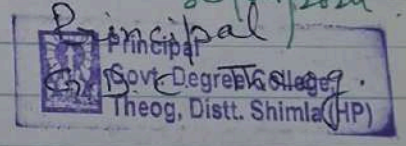 Principal
Principal
G.D.C. Theog.
Govt. Degree College,
Theog, Distt. Shimla (HP)